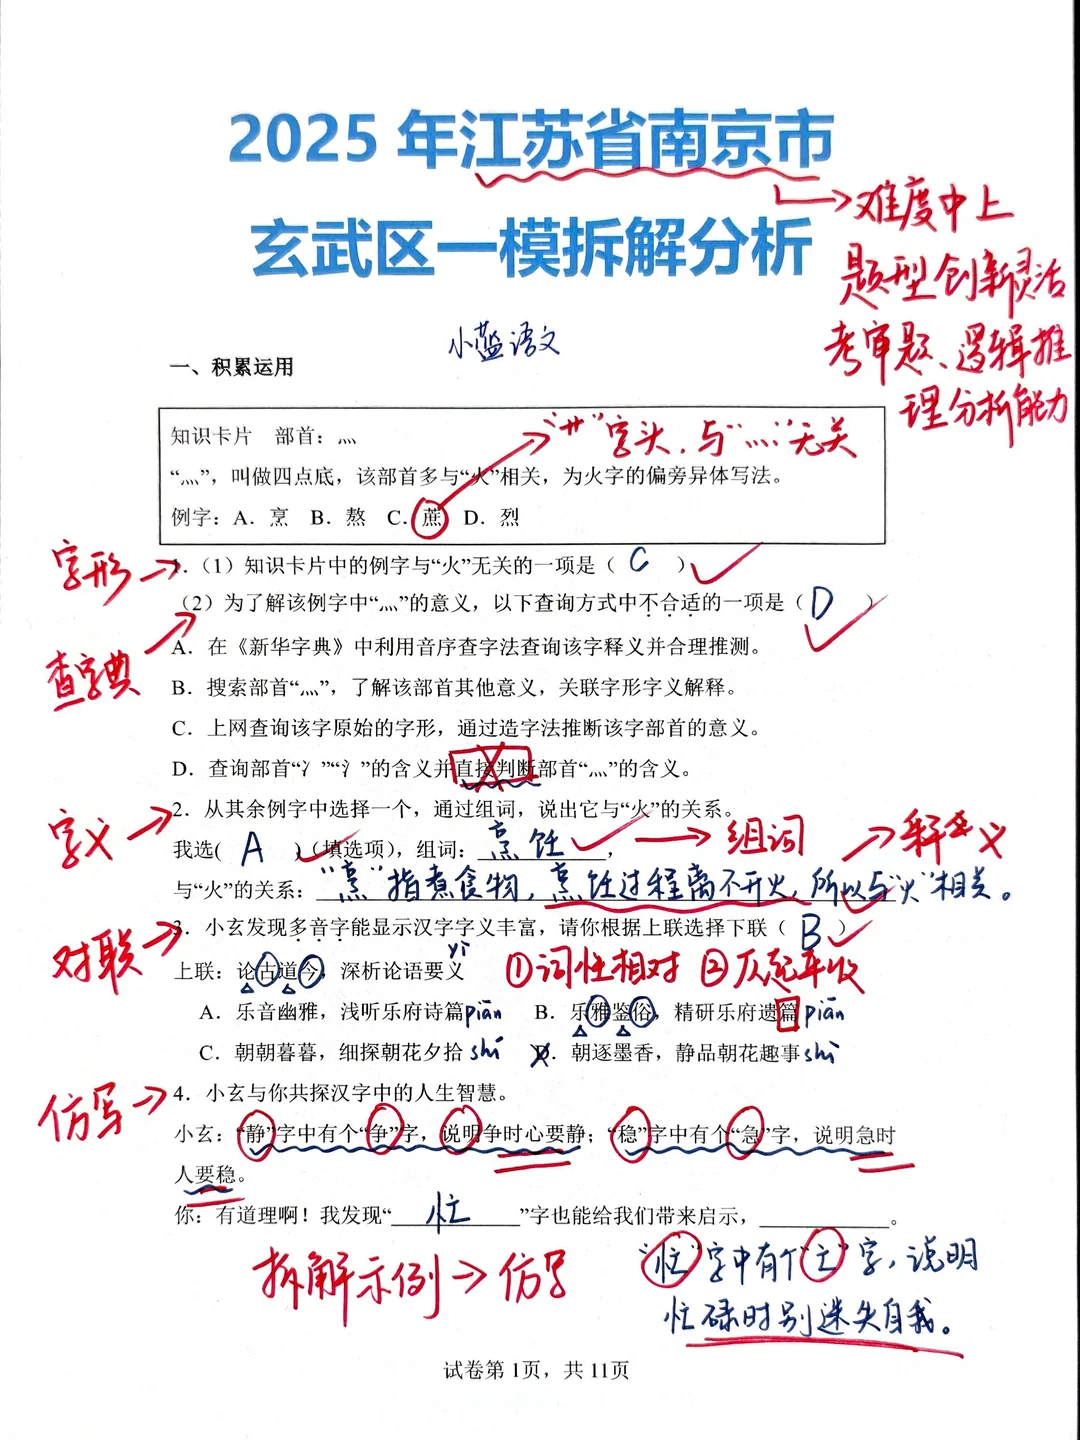 2025 年江苏省南京市
玄武区一模拆解分析
难度中上
题型创新灵活
考审题、逻辑推
理分析能力
小蓝语文
一、积累运用
“艹”字头，与“灬”无关
知识卡片 部首：灬
“灬”，叫做四点底，该部首多与“火”相关，为火字的偏旁异体写法。
例字：A．烹 B．熬 C．蔗 D．烈
字形
1.（1）知识卡片中的例字与“火”无关的一项是（ C ）
（2）为了解该例字中“灬”的意义，以下查询方式中不合适的一项是（ D ）
查字典
A．在《新华字典》中利用音序查字法查询该字释义并合理推测。
B．搜索部首“灬”，了解该部首其他意义，关联字形字义解释。
C．上网查询该字原始的字形，通过造字法推断该字部首的意义。
D．查询部首“冫”“氵”的含义并直接判断部首“灬”的含义。
字义
2．从其余例字中选择一个，通过组词，说出它与“火”的关系。
我选( A )（填选项），组词：烹饪， 组词 释义
与“火”的关系：“烹”指煮食物，烹饪过程离不开火，所以与“火”相关。
对联
3．小玄发现多音字能显示汉字字义丰富，请你根据上联选择下联（ B ）
上联：论古道今，深析论语要义 yì ①词性相对 ②仄起平收
A．乐音幽雅，浅听乐府诗篇 piān B．乐雅鉴俗，精研乐府遗篇 piān
C．朝朝暮暮，细探朝花夕拾 shí D．朝逐墨香，静品朝花趣事 shì
仿写
4．小玄与你共探汉字中的人生智慧。
小玄：“静”字中有个“争”字，说明争时心要静；“稳”字中有个“急”字，说明急时
人要稳。
你：有道理啊！我发现“ 忙 ”字也能给我们带来启示，____________。
拆解示例→仿写
“忙”字中有个“亡”字，说明
忙碌时别迷失自我。
试卷第 1页，共 11页